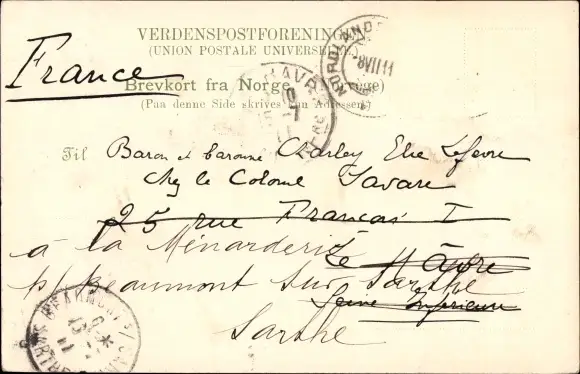 VERDENSPOSTFORENINGEN
(UNION POSTALE UNIVERSELLE)
France
Brevkort fra Norge (Norvège)
(Paa denne Side skrives kun Adressen)
Til Baron et baronne Charley Elie Lefevre
Chez le Colonel Savare
25 rue Francois I
à la Ménarderie
Le Havre
p/ Beaumont sur Sarthe
Seine Inferieure
Sarthe
8 VII 11
BEAUMONT S/
SARTHE